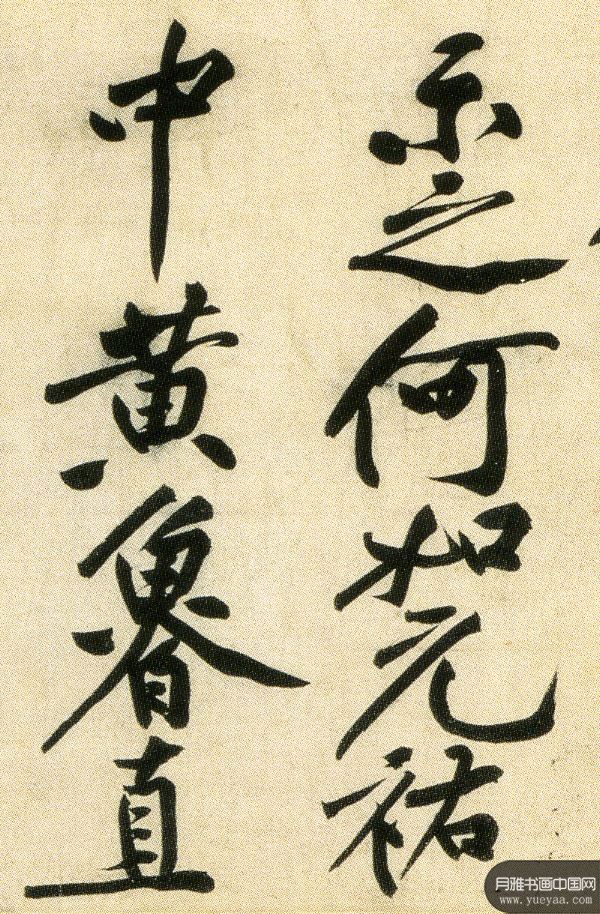 示之何如元祐
中黄魯直
月雅书画中国网
www.yueyaa.com